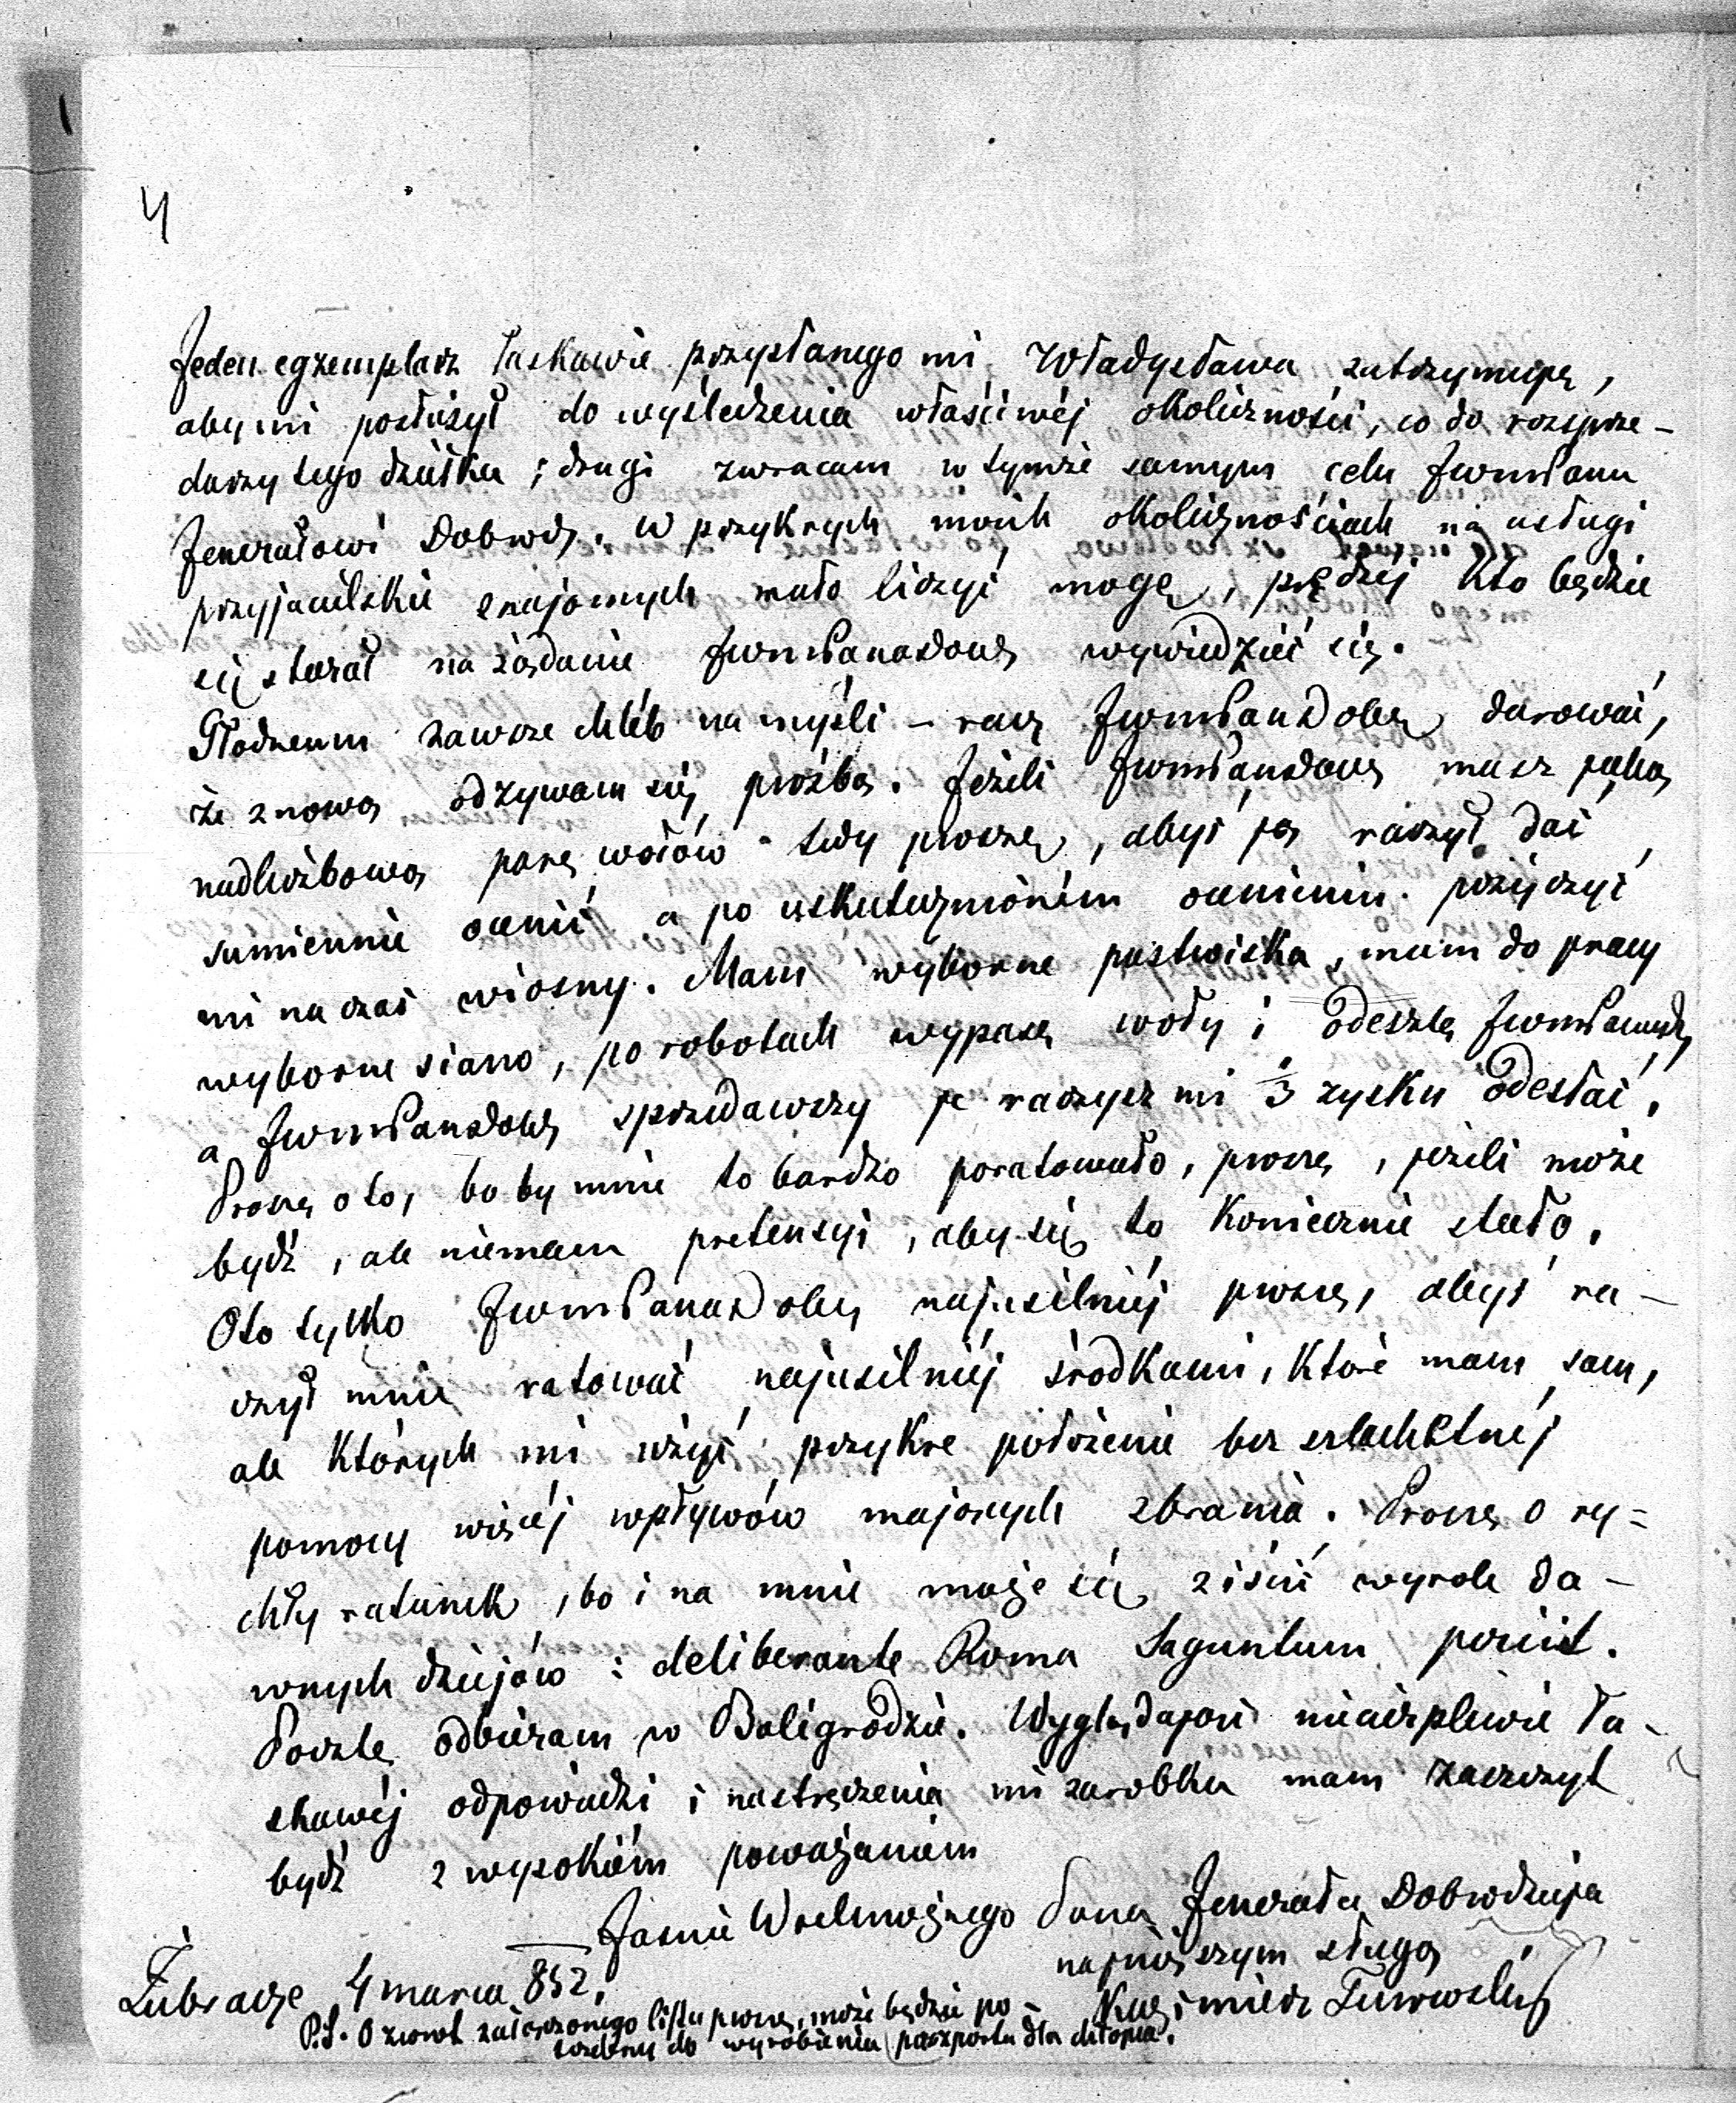 4
Jeden egzemplarz łaskawie przysłanego mi Władysława zatrzymuję,
aby mi posłużył do wyśledzenia właściwéj okoliczności, co do rozsprze-
darzy tego dziełka; drugi zwracam w tymże samym celu JwmPanu
Jenerałowi Dobrodz. W przykrych moich okolicznościach na usługi
przyjacielskie znajomych mało liczyć mogę, prędzéj kto będzie
się starał na żądanie JwmPanaDobrz wywiedzieć się.
Głodnemu zawsze chléb na myśli – racz JwmPanDobrz darować,
że znową odzywam się prośbą. Jeżeli JwmPanDobrz masz jaką
nadliczbową parę wołów – tedy proszę, abyś ją raczył dać
sumiennie ocenić a po uskutecznioném ocenieniu pożyczyć
mi na czas wiosny. Mam wyborne pastwiska, mam do pracy
wyborne siano, po robotach wypasę woły i odeszlę
a JwmPanDobrz sprzedawszy je raczysz mi 1/3 zysku odesłać.
Proszę o to, bo by mnie to bardzo poratowało, proszę, jeżeli może
bydź, ale niemam pretensyi, aby się to koniecznie stało.
Oto tylko JwmPanaDobrz najusilniéj proszę, abyś ra-
czył mnie ratować najusilniéj środkami, które mam sam,
ale których mi użyć przykre położenie bez szlachetnéj
pomocy więcéj wpływów mających zbrania. Proszę o ry=
chły ratunek, bo i na mnie może się ziścić wyrok da-
wnych dziejów: deliberante Roma Saguntum periit.
Pocztę odbieram w Baligrodzie. Wyglądając niecierpliwie ła-
skawéj odpowiedzi i nastręczenia mi zarobku mam zaszczyt
bydź z wysokiém poważaniem
Jaśnie Wielmożnego Pana Jenerała Dobrodzieja
najniższym sługą
Żubracze 4 marca 852. Kazimierz Turowski
P.S. O zwrot załączonego listu proszę, może będzie po-
trzebny do wyrobienia paszportu dla chłopca.